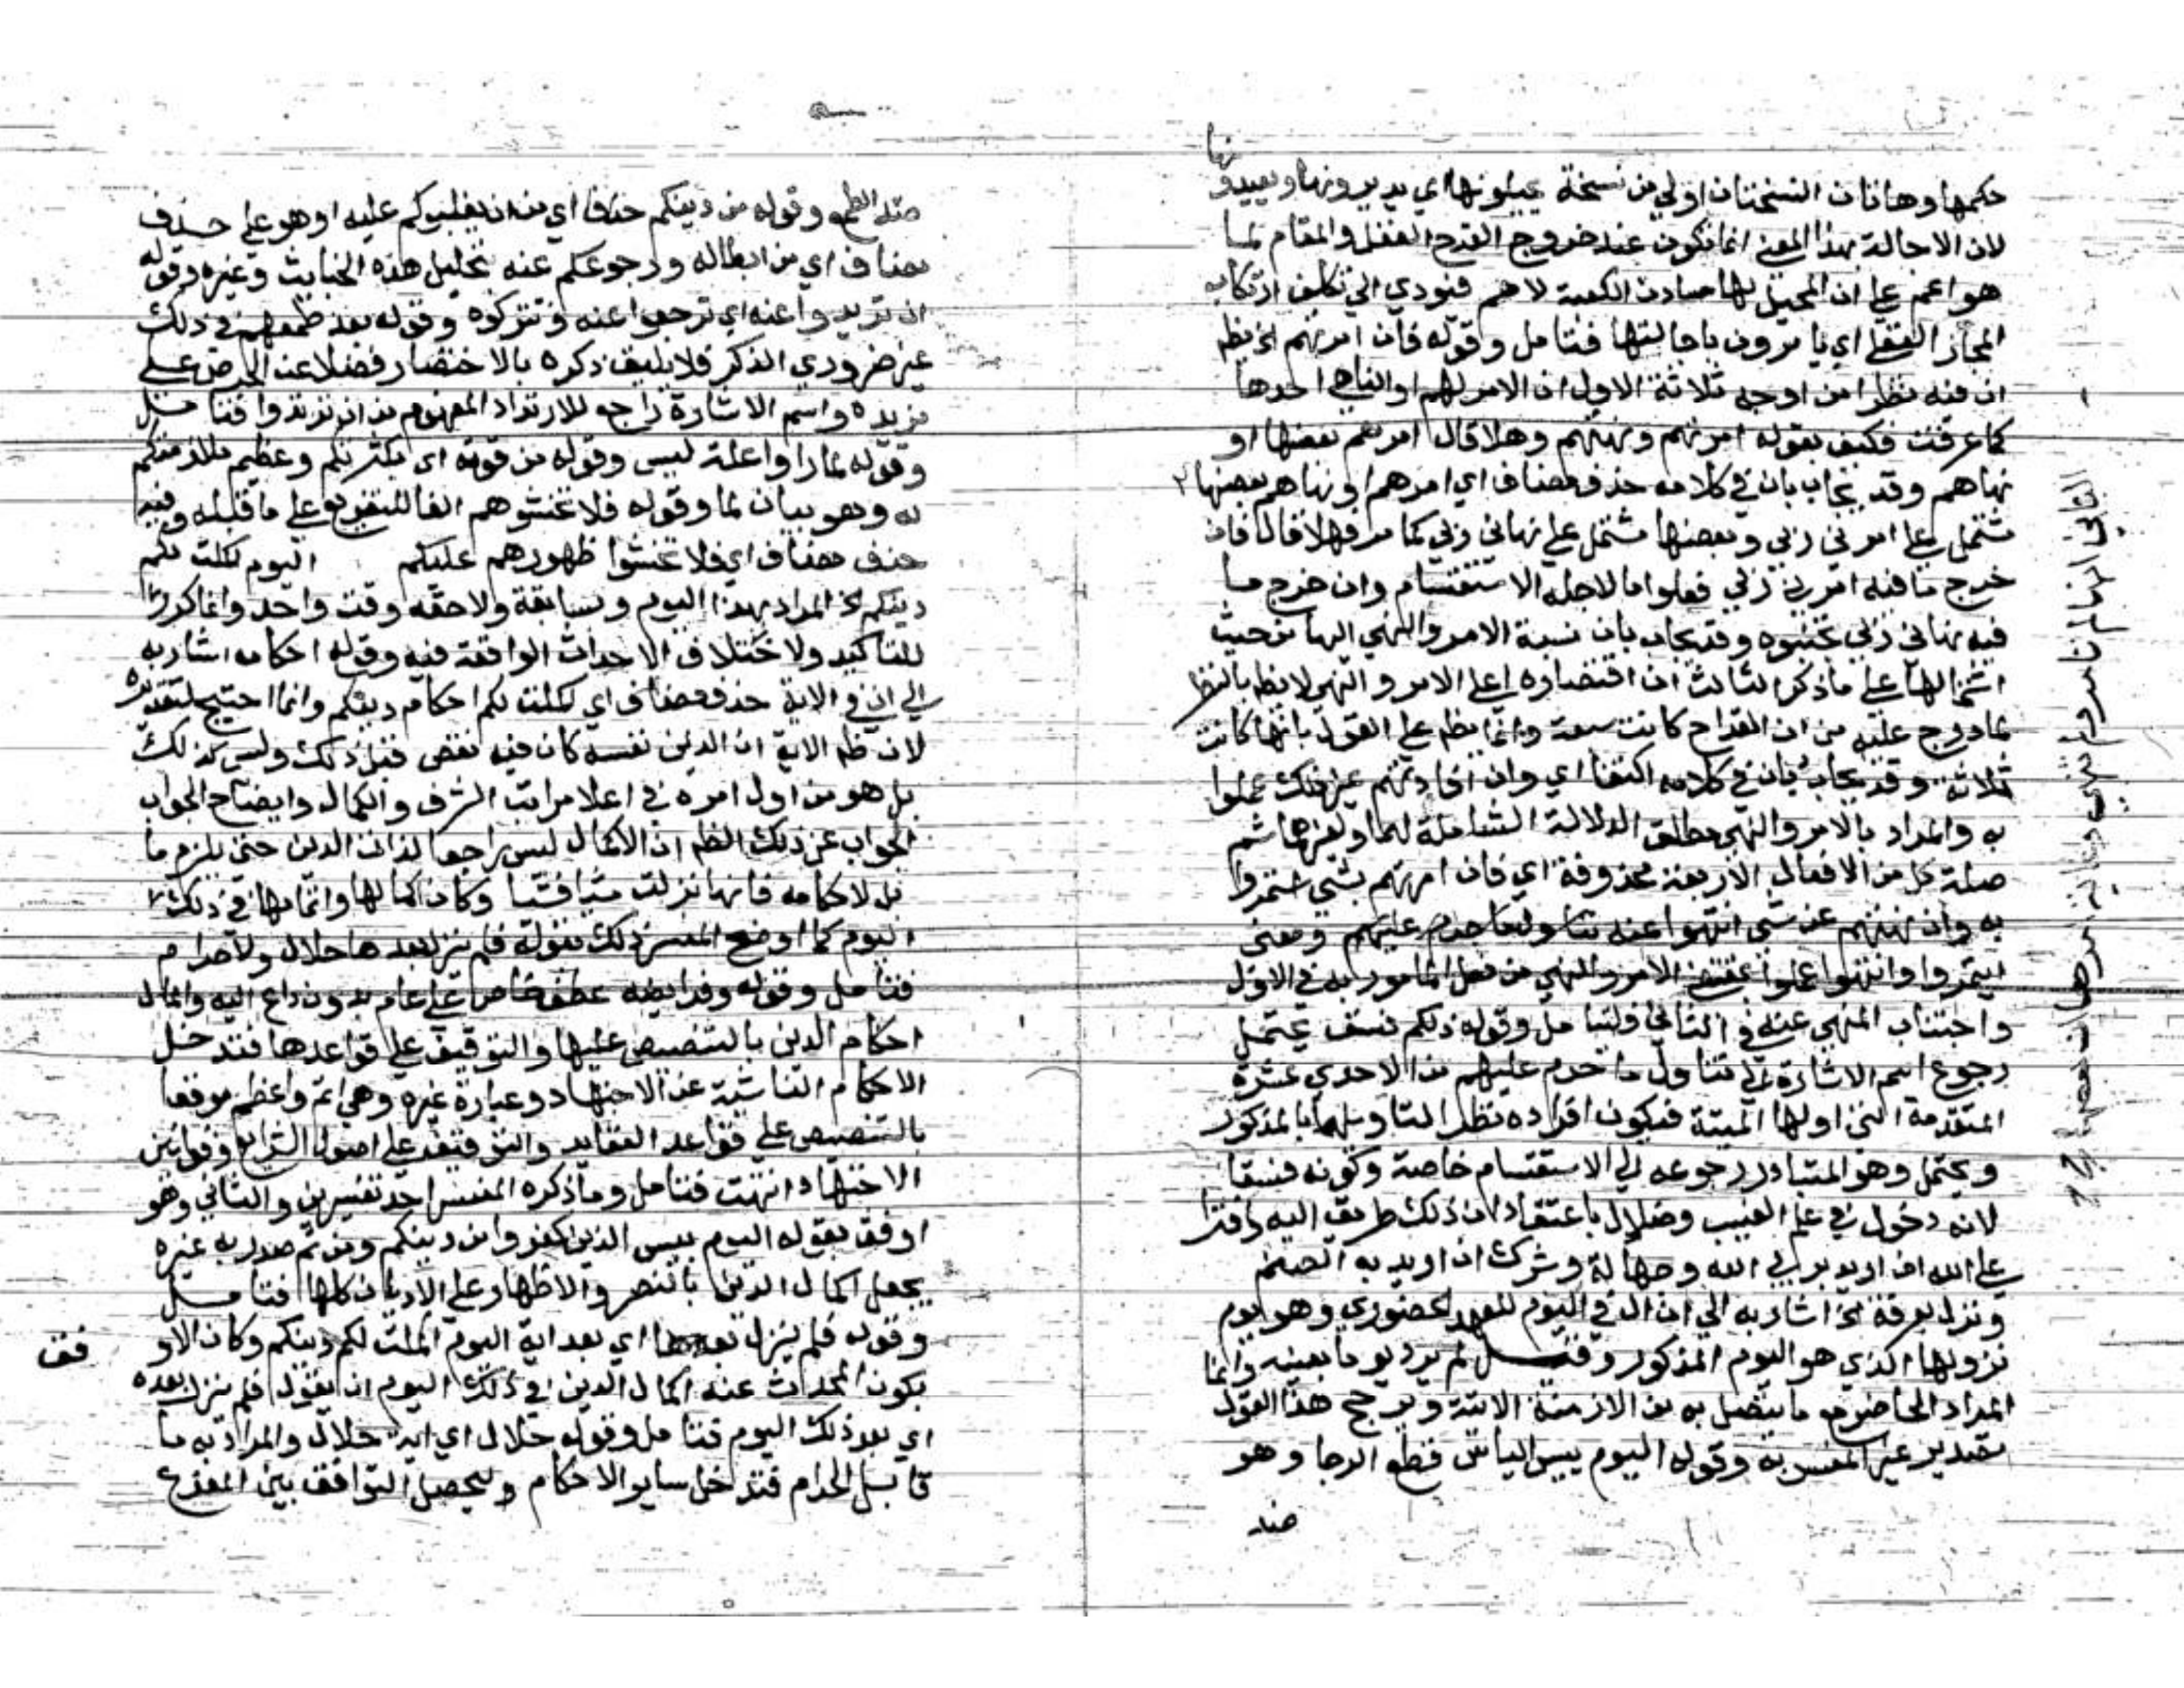 حكمها وهاتان النسختان اولي من نسخة يجيلونها اي يديرونها ويعيدونها
لان الاحالة بهذا المعنى انما تكون عند خروج القدح الغفل والمقام لما
هو اعم على ان المحيل لها سادن الكعبة لا هم فنودي الى تكلف ارتكاب
المجاز العقلي اي يامرون باجالتها فتامل وقوله فان امرتهم الخ يظهر
ان فيه نظرا من اوجه ثلاثة الاول ان الامر لهم او الناهي احدها
كما عرفت فكيف يقوله امرتهم ونهتهم وهلا قال امرهم بعضها او
نهاهم وقد يجاب بان في كلامه حذف مضاف اي امرهم او نهاهم بعضها
مشتمل على امرني ربي وبعضها مشتمل على نهاني ربي كما مر فهلا قال فان
خرج ما فيه امرني ربي فعلوا ما لاجله الاستقسام وان خرج ما
فيه نهاني ربي تجنبوه وقد يجاب بان نسبة الامر والنهي اليها من حيث
اشتمالها على ما ذكر الثالث ان اقتصاره على الامر والنهي لا يظهر بالنظر
لما درج عليه من ان القداح كانت سبعة وانما يظهر على القول بانها كانت
ثلاثة وقد يجاب بان في كلامه اكتفا اي وان افادتهم غير ذلك عملوا
به والمراد بالامر والنهي مطلق الدلالة الشاملة لهما ولغيرهما ثم
صلة كل من الافعال الاربعة محذوفة اي فان امرتهم بشي ائتمروا
به وان نهتهم عن شي انتهوا عنه تناول ما حرم عليهم ومعنى
ائتمروا وانتهوا عملوا بمقتضى الامر والنهي من فعل المامور به في الاول
واجتناب المنهي عنه في الثاني وليتامل وقوله ذلكم فسق يحتمل
رجوع اسم الاشارة الى تناول ما حرم عليهم من الاحدي عشرة
المتقدمة التي اولها الميتة فيكون افراده نظرا لتاويلها بالمذكور
ويحتمل وهو المتبادر رجوعه الي الاستقسام خاصة وكونه فسقا
لانه دخول في علم الغيب وضلال باعتقاد ان ذلك طريق اليه وافترا
على الله ان اريد بربي الله وجهالة وشرك ان اريد به الصنم
ونزل بعرفة الخ اشار به الي ان ال في اليوم للعهد الحضوري وهو يوم
نزولها الذي هو اليوم المذكور وقيل لم يرد يوما بعينه وانما
المراد الحاضر مع ما يتصل به من الازمنة الاتية ويرجح هذا القول
تصدير غير المفسر به وقوله اليوم يئس الياس قطع الرجا وهو
ضد
ضد الطمع وقوله من دينكم حذف اي من ان يغلبوكم عليه او هو على حذف
مضاف اي من ابطاله ورجوعكم عنه بتحليل هذه الخبايث وغيره وقوله
ان ترتدوا عنه اي ترجعوا عنه وتتركوه وقوله بعد طمعهم في ذلك
غير ضروري الذكر فلا يليق ذكره بالاختصار فضلا عن الحرص على
مزيده واسم الاشارة راجع للارتداد المفهوم من ان ترتدوا فتامل
وقوله لما راوا علة ليس وقوله من قوته اي بكثرتكم وعظيم
له وهو بيان لما وقوله فلا تخشوهم الفا للتفريع على ما قبله وفيه
حذف مضاف اي فلا تخشوا ظهورهم عليكم اليوم اكملت لكم
دينكم الخ المراد بهذا اليوم وسابقة ولاحقه وقت واحد وانما كرر
للتاكيد ولاختلاف الاحداث الواقعة فيه وقوله احكامه اشار به
الي ان في الاية حذف مضاف اي اكملت لكم احكام دينكم وانما احتيج لتقديره
لان ظاهر الاية ان الدين نفسه كان فيه نقص قبل ذلك وليس كذلك
بل هو من اول امره في اعلا مراتب الشرف والكمال وايضاح الجواب
الجواب عن ذلك الظاهر ان الاكمال ليس راجعا لذات الدين حتى يلزم ما
بل لاحكامه فانها نزلت شيا فشيا وكان اكمالها واتمامها في ذلك
اليوم كما اوضح المفسر ذلك بقوله فلم ينزل بعدها حلال ولا حرام
فتامل وقوله وفرايضه عطف خاص على عام بدون داع اليه واكمال
احكام الدين بالتنصيص عليها والتوقيف على قواعدها فتدخل
الاحكام الناشية عن الاجتهاد وعبارة غيره وهي اتم واعظم موقعا
بالتنصيص على قواعد العقايد والتوقيف على اصول الشرايع وقوانين
الاجتهاد انتهت فتامل وما ذكره المفسر احد تفسيرين والثاني وهو
اوفق بقوله اليوم يئس الذين كفروا من دينكم ومن ثم صدر به غيره
يجعل اكمال الدين بالنصر والاظهار على الاديان كلها فتامل
وقوله فلم ينزل بعدها اي بعد اية اليوم اكملت لكم دينكم وكان الاو
فق
بكون المحدث عنه اكمال الدين في ذلك اليوم ان يقول فلم ينزل بعده
اي بعد ذلك اليوم فتامل وقوله حلال اي اية حلال والمراد به ما
قابل الحرام فتدخل ساير الاحكام وليحصل التوافق بين المفرع